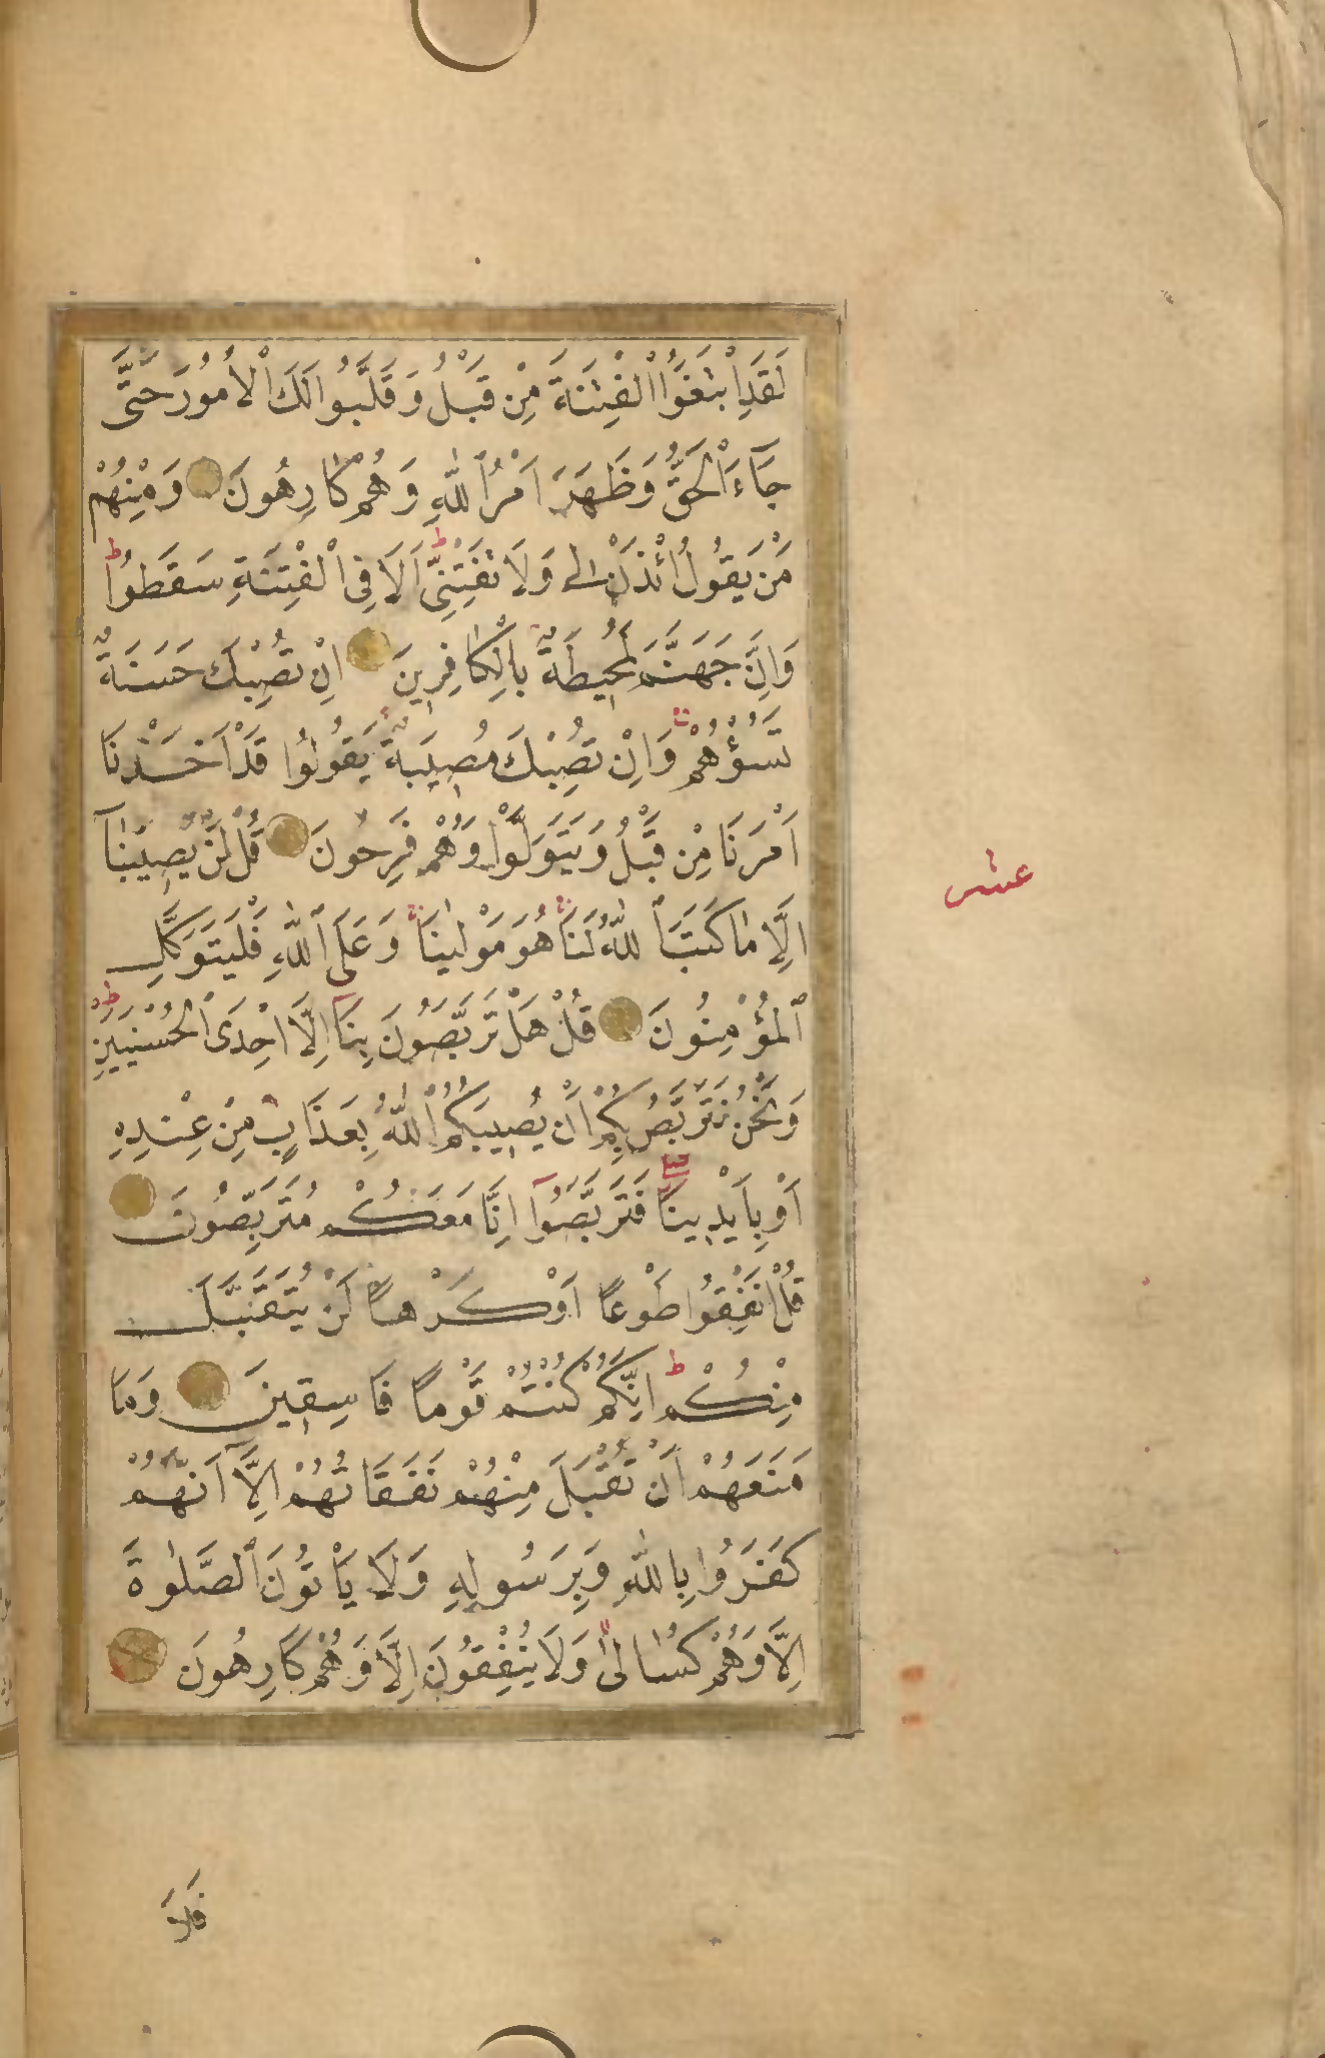 لَقَدِ ابْتَغَوُا الْفِتْنَةَ مِنْ قَبْلُ وَقَلَّبُوا لَكَ الْأُمُورَ حَتَّى
جَآءَ الْحَقُّ وَظَهَرَ اَمْرُ اللّٰهِ وَهُمْ كَارِهُونَ وَمِنْهُمْ
مَنْ يَقُولُ ائْذَنْ لِي وَلَا تَفْتِنِّي اَلَا فِي الْفِتْنَةِ سَقَطُوا ط
وَاِنَّ جَهَنَّمَ لَمُحِيطَةٌ بِالْكَافِرِينَ اِنْ تُصِبْكَ حَسَنَةٌ
تَسُؤْهُمْ وَاِنْ تُصِبْكَ مُصِيبَةٌ يَقُولُوا قَدْ اَخَذْنَا
اَمْرَنَا مِنْ قَبْلُ وَيَتَوَلَّوْا وَهُمْ فَرِحُونَ قُلْ لَنْ يُصِيبَنَآ
اِلَّا مَا كَتَبَ اللّٰهُ لَنَا هُوَ مَوْلٰينَا وَعَلَى اللّٰهِ فَلْيَتَوَكَّلِ
الْمُؤْمِنُونَ قُلْ هَلْ تَرَبَّصُونَ بِنَآ اِلَّا اِحْدَى الْحُسْنَيَيْنِ ط
وَنَحْنُ نَتَرَبَّصُ بِكُمْ اَنْ يُصِيبَكُمُ اللّٰهُ بِعَذَابٍ مِنْ عِنْدِهِ
اَوْ بِاَيْدِينَا فَتَرَبَّصُوآ اِنَّا مَعَكُمْ مُتَرَبِّصُونَ
قُلْ اَنْفِقُوا طَوْعًا اَوْ كَرْهًا لَنْ يُتَقَبَّلَ
مِنْكُمْ ط اِنَّكُمْ كُنْتُمْ قَوْمًا فَاسِقِينَ وَمَا
مَنَعَهُمْ اَنْ تُقْبَلَ مِنْهُمْ نَفَقَاتُهُمْ اِلَّآ اَنَّهُمْ
كَفَرُوا بِاللّٰهِ وَبِرَسُولِهِ وَلَا يَأْتُونَ الصَّلٰوةَ
اِلَّا وَهُمْ كُسَالٰى وَلَا يُنْفِقُونَ اِلَّا وَهُمْ كَارِهُونَ
عشر
فَلَا